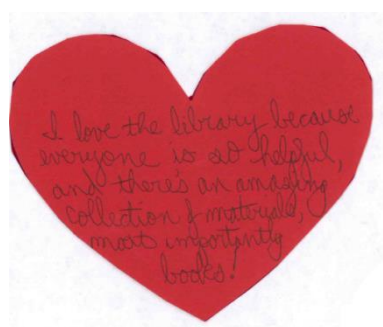 I love the library because
everyone is so helpful,
and there's an amazing
collection of materials,
most importantly
books!